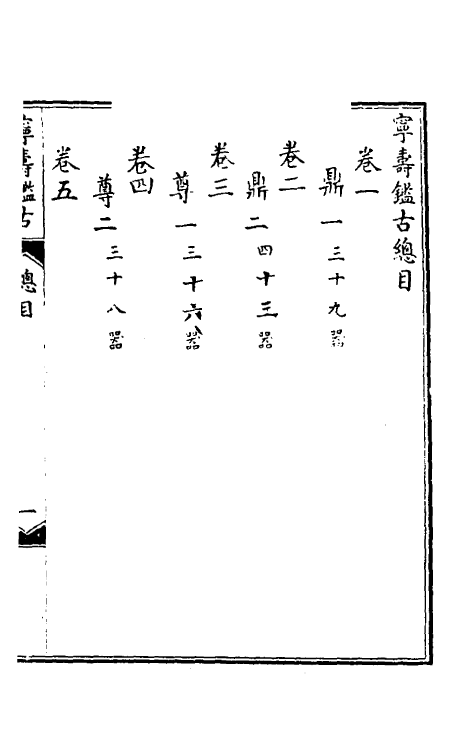 寧壽鑑古總目
卷一
鼎一三十九器
卷二
鼎二四十三器
卷三
尊一三十六器
卷四
尊二三十八器
卷五
寧壽鑑古
總目
一